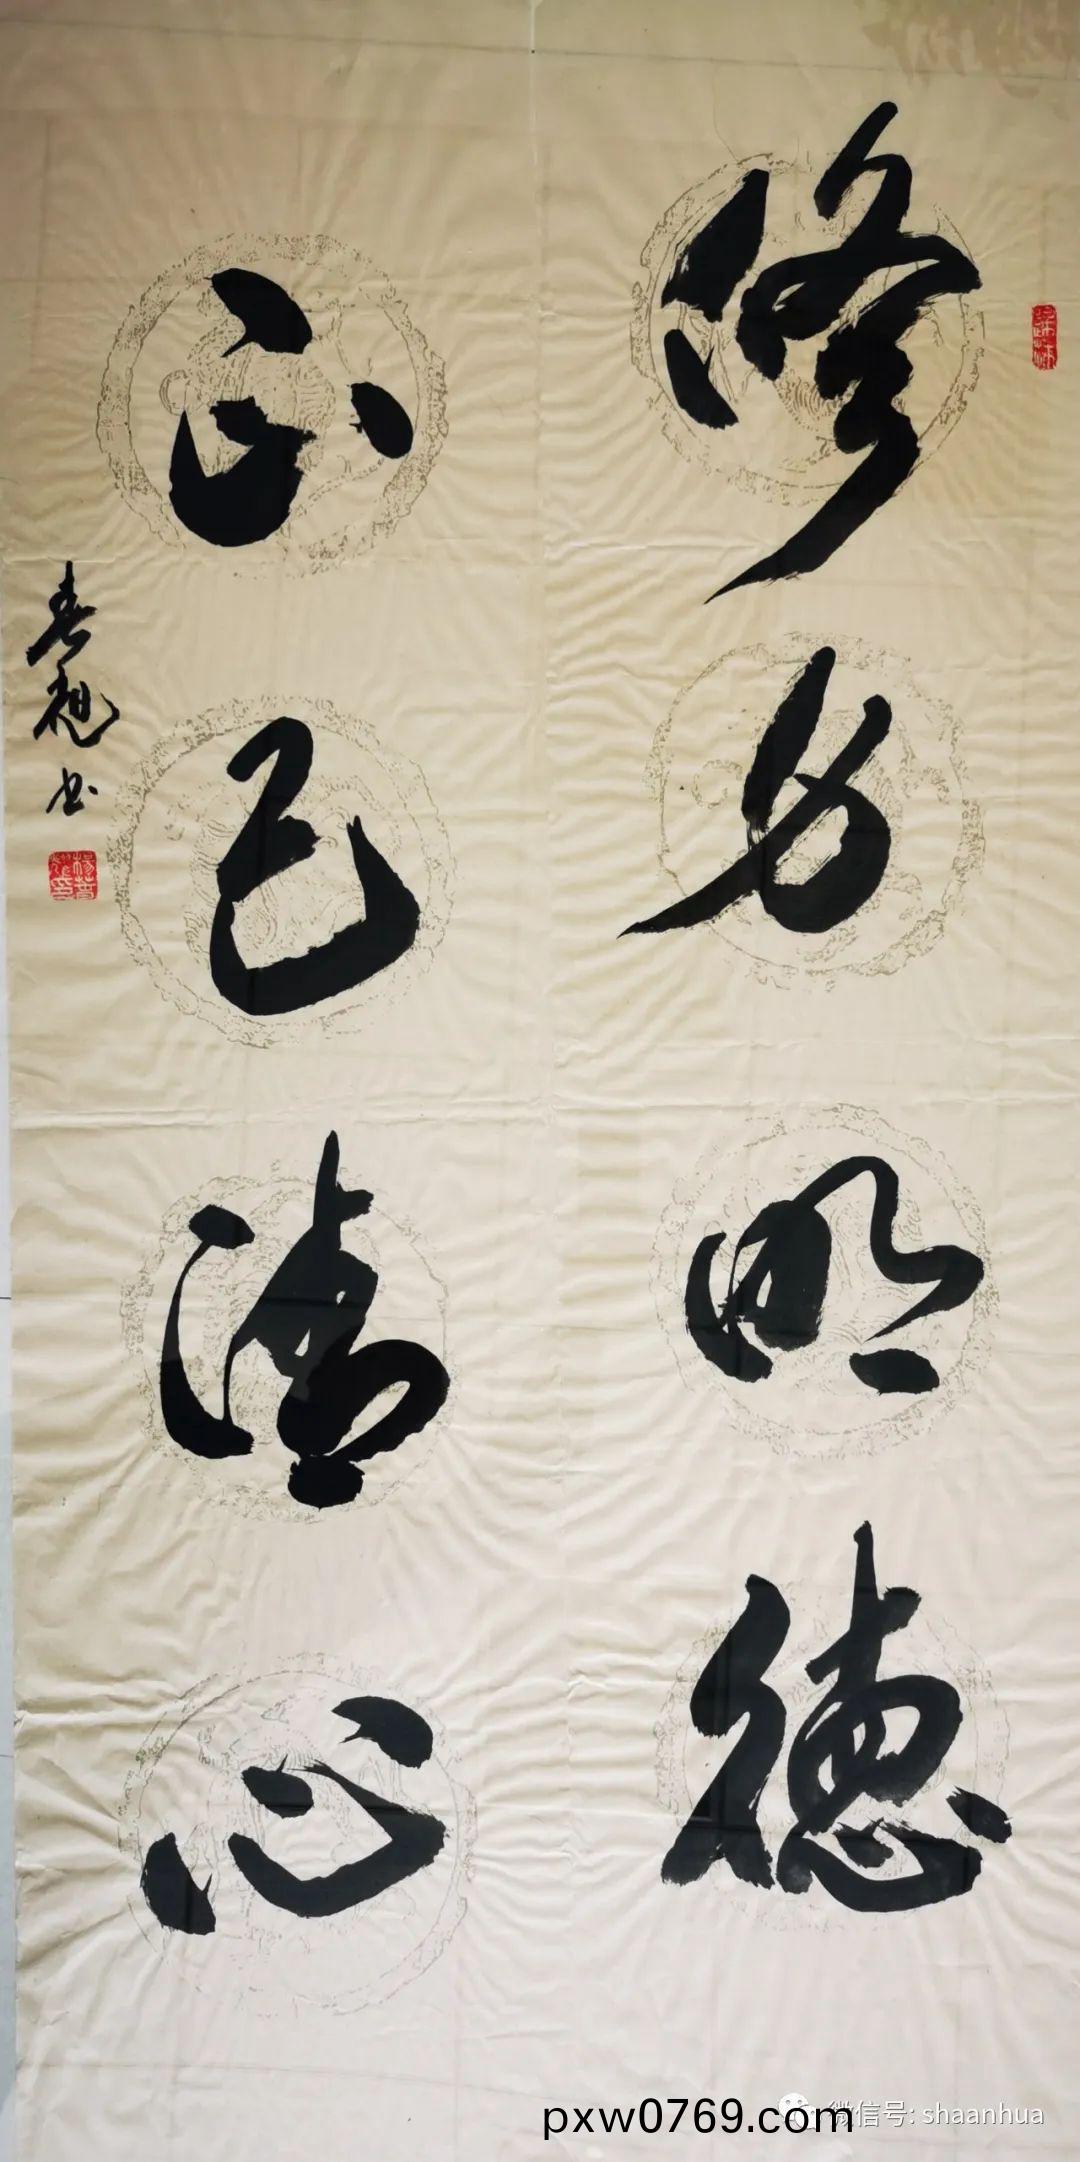 修身明德
正己清心
春 书
pxw0769.com
微信号: shaanhua